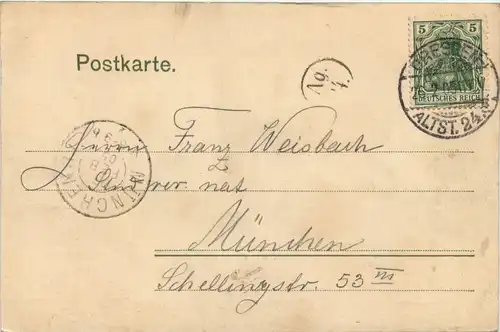 Postkarte.
Ag.
4.
5 5
DEUTSCHES REICH
DRESDEN
ALTST. 24.
MÜNCHEN
Herrn Franz Weisbach
rer nat
München
Schellingstr. 53 III